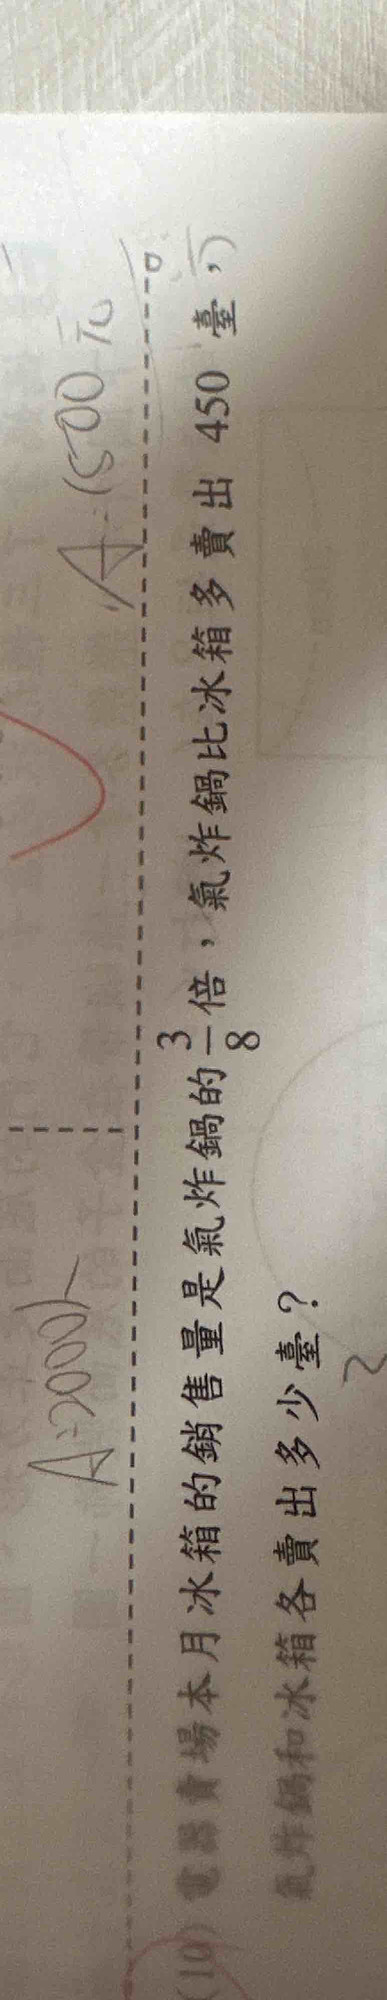 A=2000人
A=1500元
(10) 電器賣場本月冰箱的銷售量是氣炸鍋的 3/8 倍，氣炸鍋比冰箱多賣出 450 臺，
氣炸鍋和冰箱各賣出多少臺？